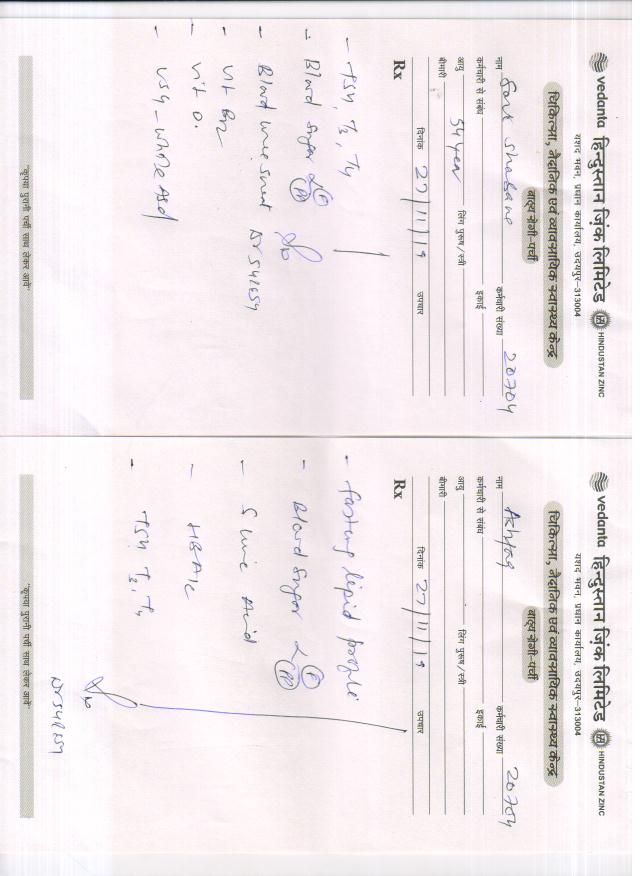 vedanta हिन्दुस्तान ज़िंक लिमिटेड HINDUSTAN ZINC
यशद भवन, प्रधान कार्यालय, उदयपुर–313004
चिकित्सा, नैदानिक एवं व्यावसायिक स्वास्थ्य केन्द्र
बाह्य रोगी-पर्ची
नाम कर्मचारी संख्या 20704
कर्मचारी से संबंध इकाई
आयु 54 year लिंग पुरूष/स्त्री
बीमारी
दिनांक 27/11/19 उपचार
Rx
- TSH, T3, T4
- Blood Sugar F PP
- Blood
- Vit B12
- Vit D.
- USG - Whole Abd
"कृपया पुरानी पर्ची साथ लेकर आवें"
vedanta हिन्दुस्तान ज़िंक लिमिटेड HINDUSTAN ZINC
यशद भवन, प्रधान कार्यालय, उदयपुर–313004
चिकित्सा, नैदानिक एवं व्यावसायिक स्वास्थ्य केन्द्र
बाह्य रोगी-पर्ची
नाम Ashfaq कर्मचारी संख्या 20704
कर्मचारी से संबंध इकाई
आयु लिंग पुरूष/स्त्री
बीमारी
दिनांक 27/11/19 उपचार
Rx
- fasting lipid profile
- Blood Sugar F PP
- S Uric Acid
- HBA1c
- TSH, T3, T4
"कृपया पुरानी पर्ची साथ लेकर आवें"